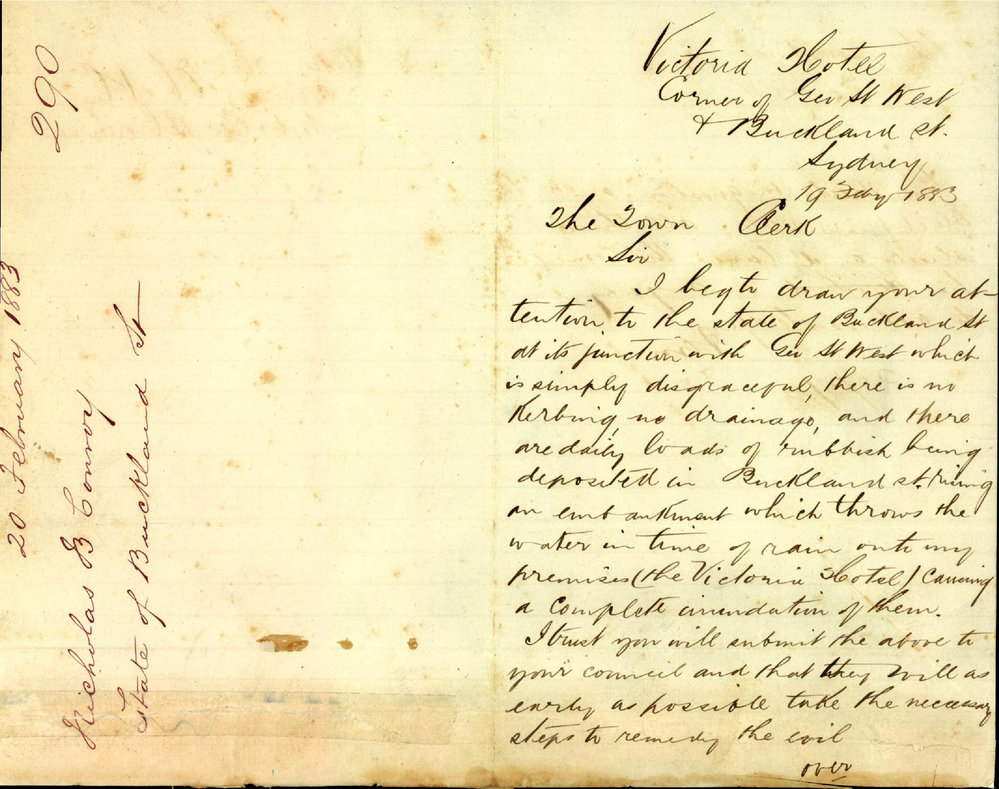 290
20 February 1883
Nicholas B Conroy
State of Buckland St
Victoria Hotel
Corner of Geo St West
& Buckland St.
Sydney
19 Feby 1883
The Town Clerk
Sir
I beg to draw your at-
tention to the state of Buckland St
at its junction with Geo St West which
is simply disgraceful, there is no
Kerbing, no drainage, and there
are daily loads of rubbish being
deposited in Buckland st.
an embankment which throws the
water in time of rain onto my
premises (the Victoria Hotel) causing
a complete inundation of them.
I trust you will submit the above to
your council and that they will as
early as possible take the necessary
steps to remedy the evil
over